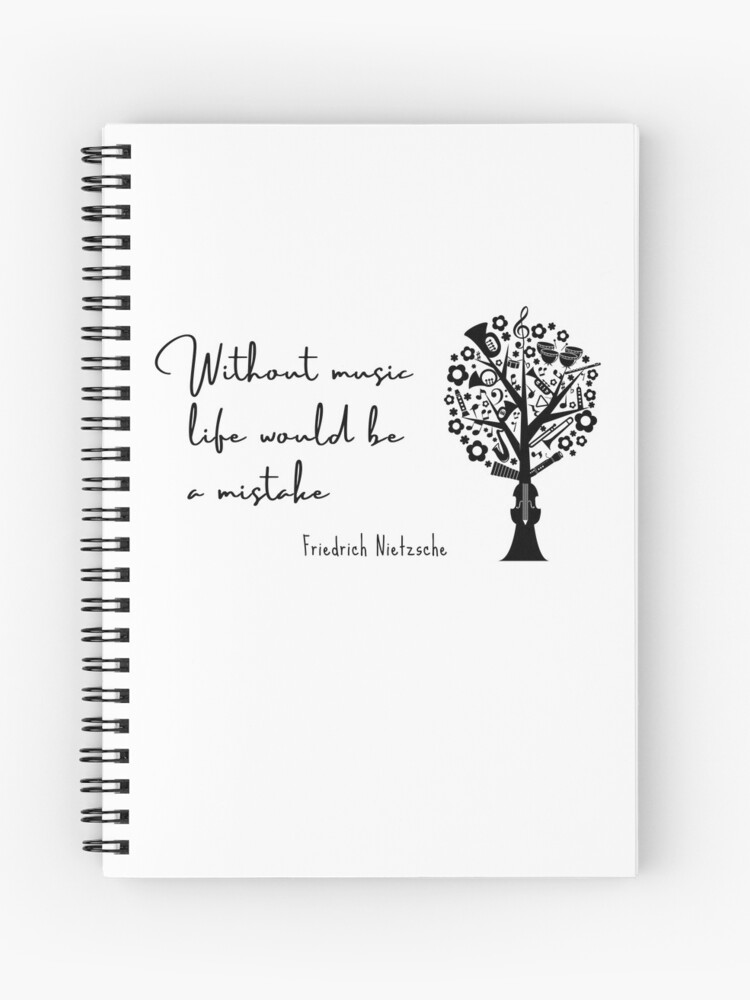 Without music
life would be
a mistake
Friedrich Nietzsche